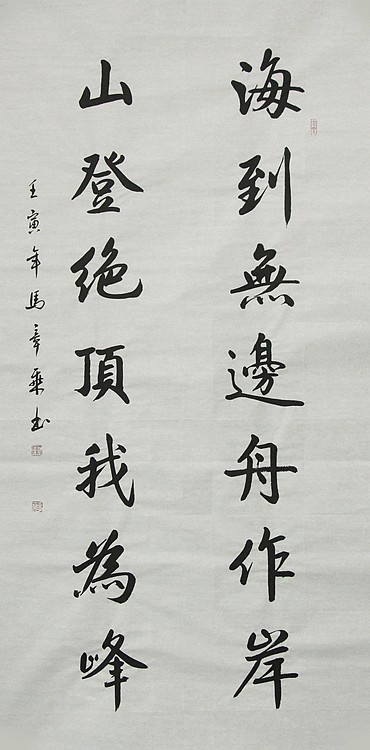 海到無邊舟作岸
山登绝頂我為峰
壬寅年馬章乘书